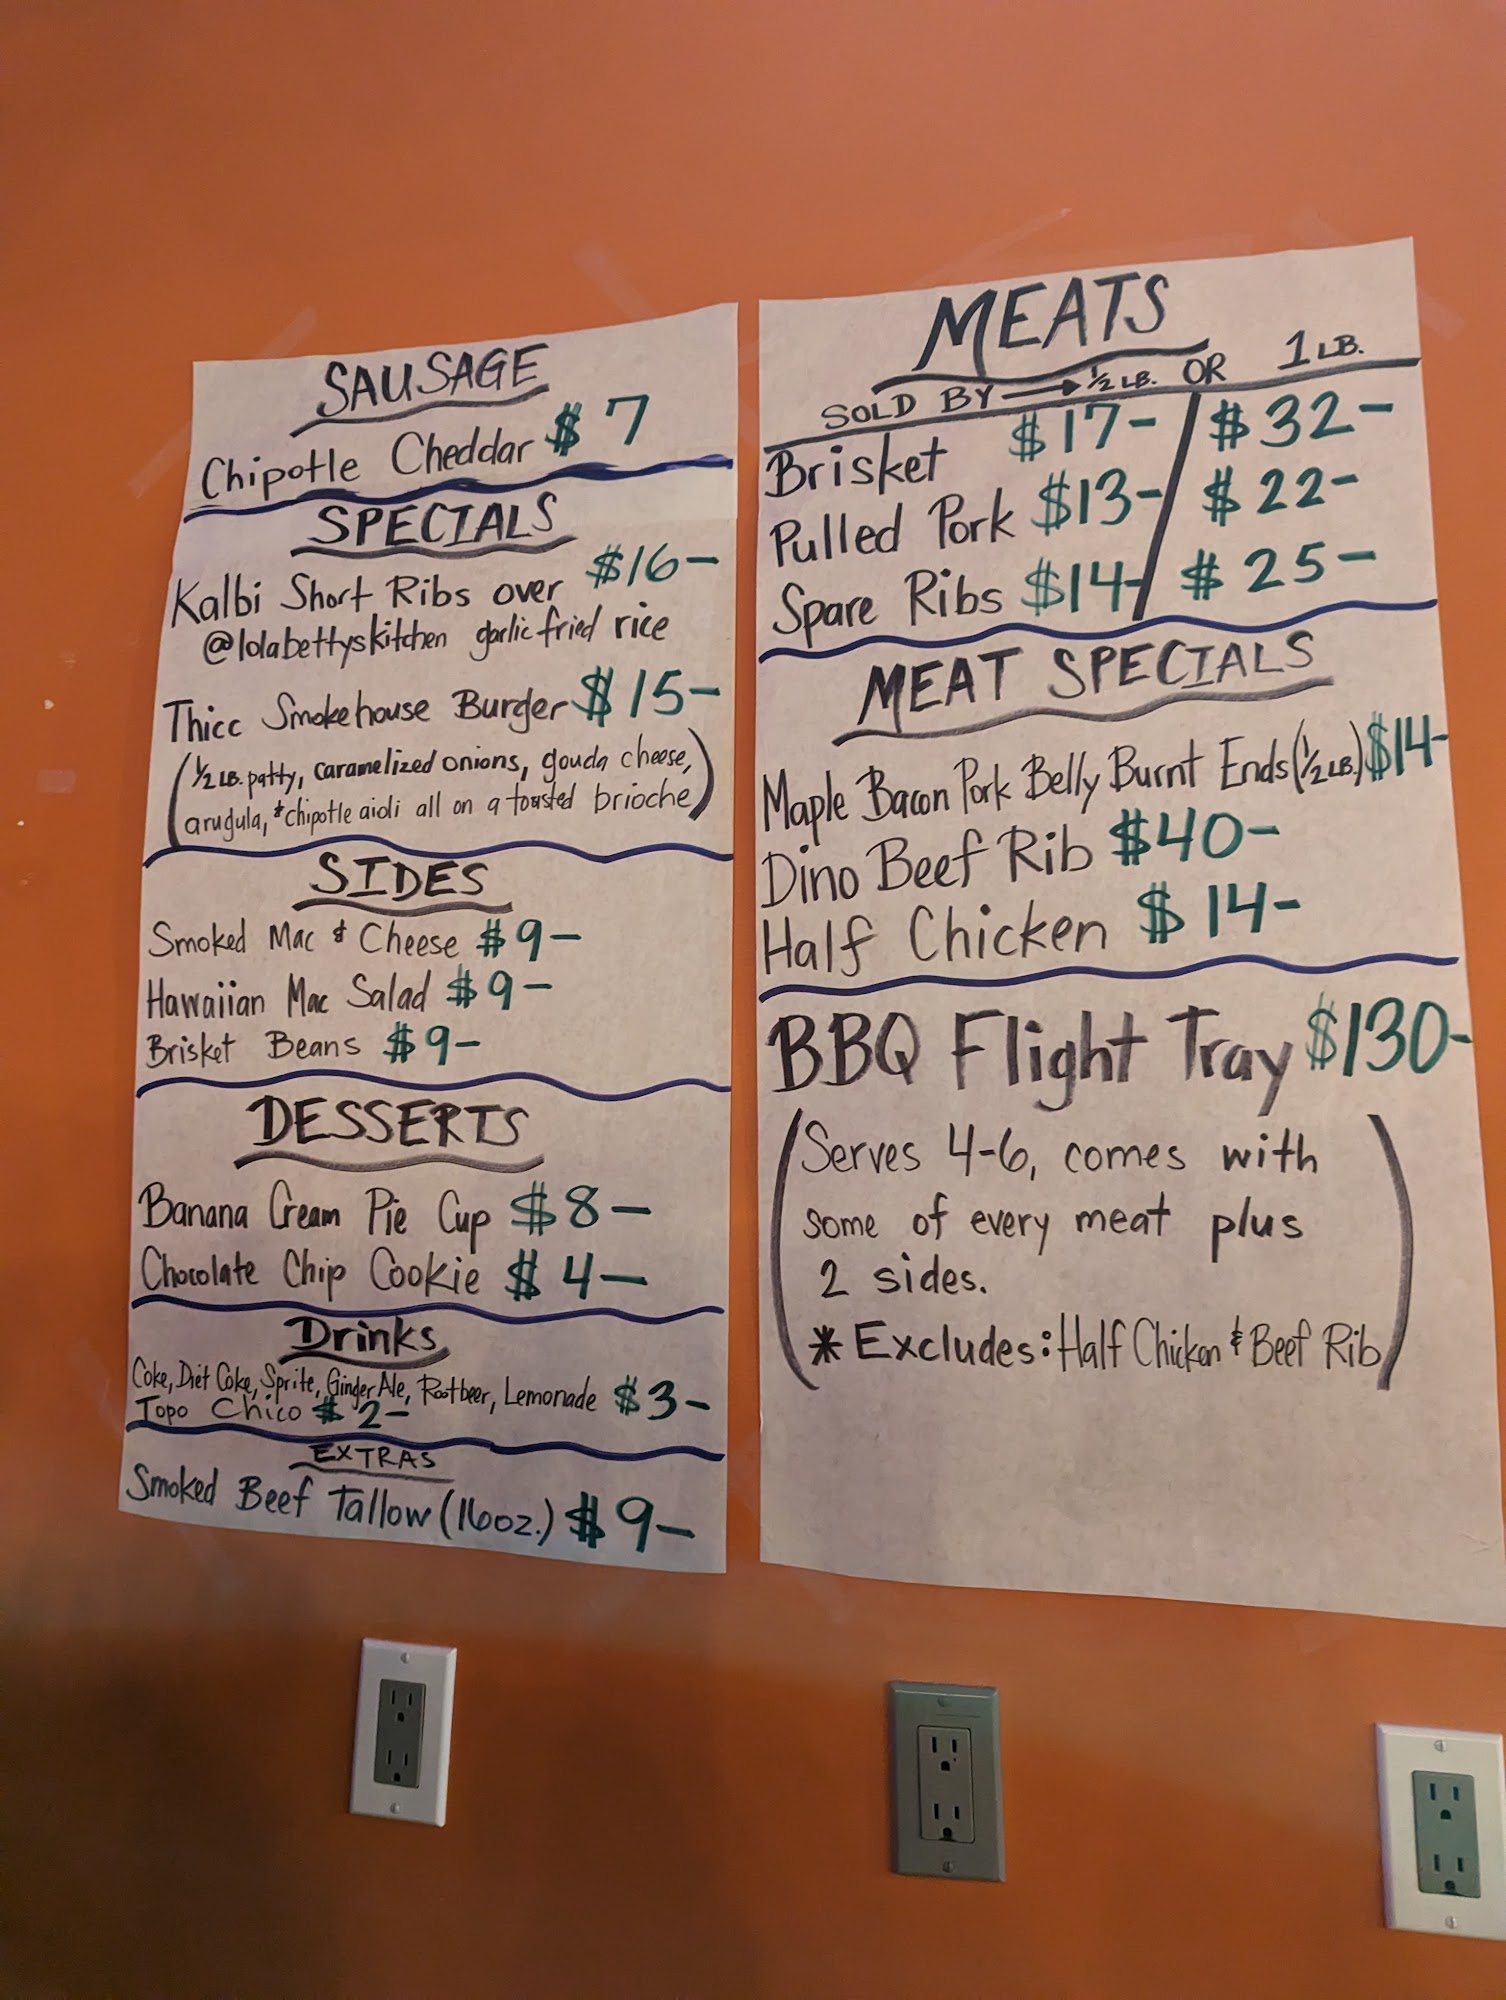 SAUSAGE
Chipotle Cheddar $7
SPECIALS
Kalbi Short Ribs over $16-
@lolabettyskitchen garlic fried rice
Thicc Smokehouse Burger $15-
(1/2 LB. patty, caramelized onions, gouda cheese,
arugula, & chipotle aioli all on a toasted brioche)
SIDES
Smoked Mac & Cheese $9-
Hawaiian Mac Salad $9-
Brisket Beans $9-
DESSERTS
Banana Cream Pie Cup $8-
Chocolate Chip Cookie $4-
Drinks
Coke, Diet Coke, Sprite, Ginger Ale, Rootbeer, Lemonade $3-
Topo Chico $2-
EXTRAS
Smoked Beef Tallow (16oz.) $9-
MEATS
SOLD BY → 1/2 LB. OR 1 LB.
Brisket $17- / $32-
Pulled Pork $13- / $22-
Spare Ribs $14- / $25-
MEAT SPECIALS
Maple Bacon Pork Belly Burnt Ends (1/2 LB.) $14-
Dino Beef Rib $40-
Half Chicken $14-
BBQ Flight Tray $130-
(Serves 4-6, comes with
some of every meat plus
2 sides.
* Excludes: Half Chicken & Beef Rib)